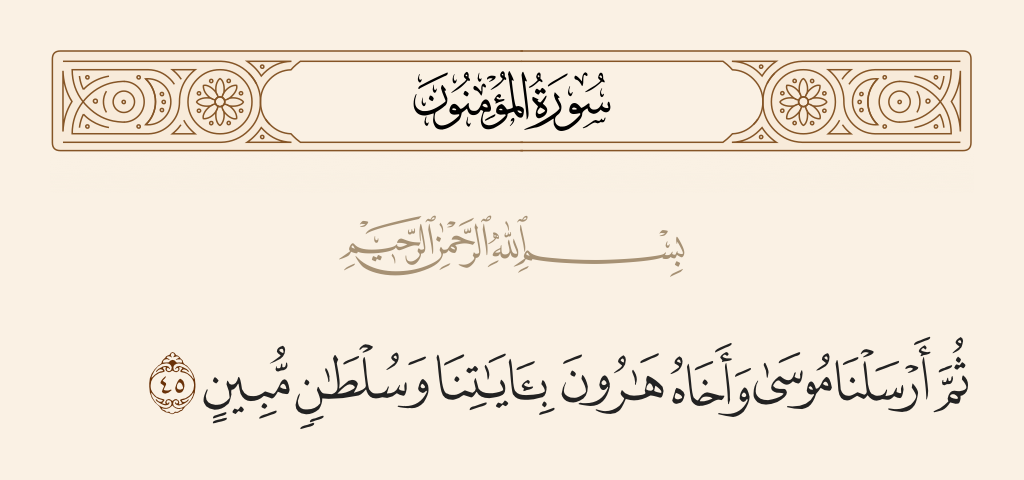 سُورَةُ المُؤۡمِنُونَ
بِسۡمِ ٱللَّهِ ٱلرَّحۡمَٰنِ ٱلرَّحِيمِ
ثُمَّ أَرۡسَلۡنَا مُوسَىٰ وَأَخَاهُ هَٰرُونَ بِـَٔايَٰتِنَا وَسُلۡطَٰنٖ مُّبِينٍ ٤٥